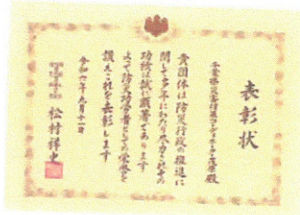 表彰状
殿
貴団体は防災行政の推進に
関して多年にわたり尽力されその
功績は誠に顕著であります
よって防災功労者としての栄誉を
讃えこれを表彰します
令和六年九月十一日
松村祥史